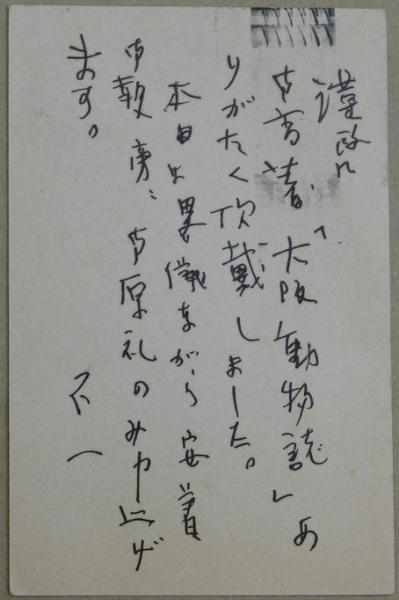 謹啓
御高著「大阪動物誌」あ
りがたく頂戴しました。
本日は畧儀ながら安着
御報旁々御厚礼のみ申上げ
ます。　不一